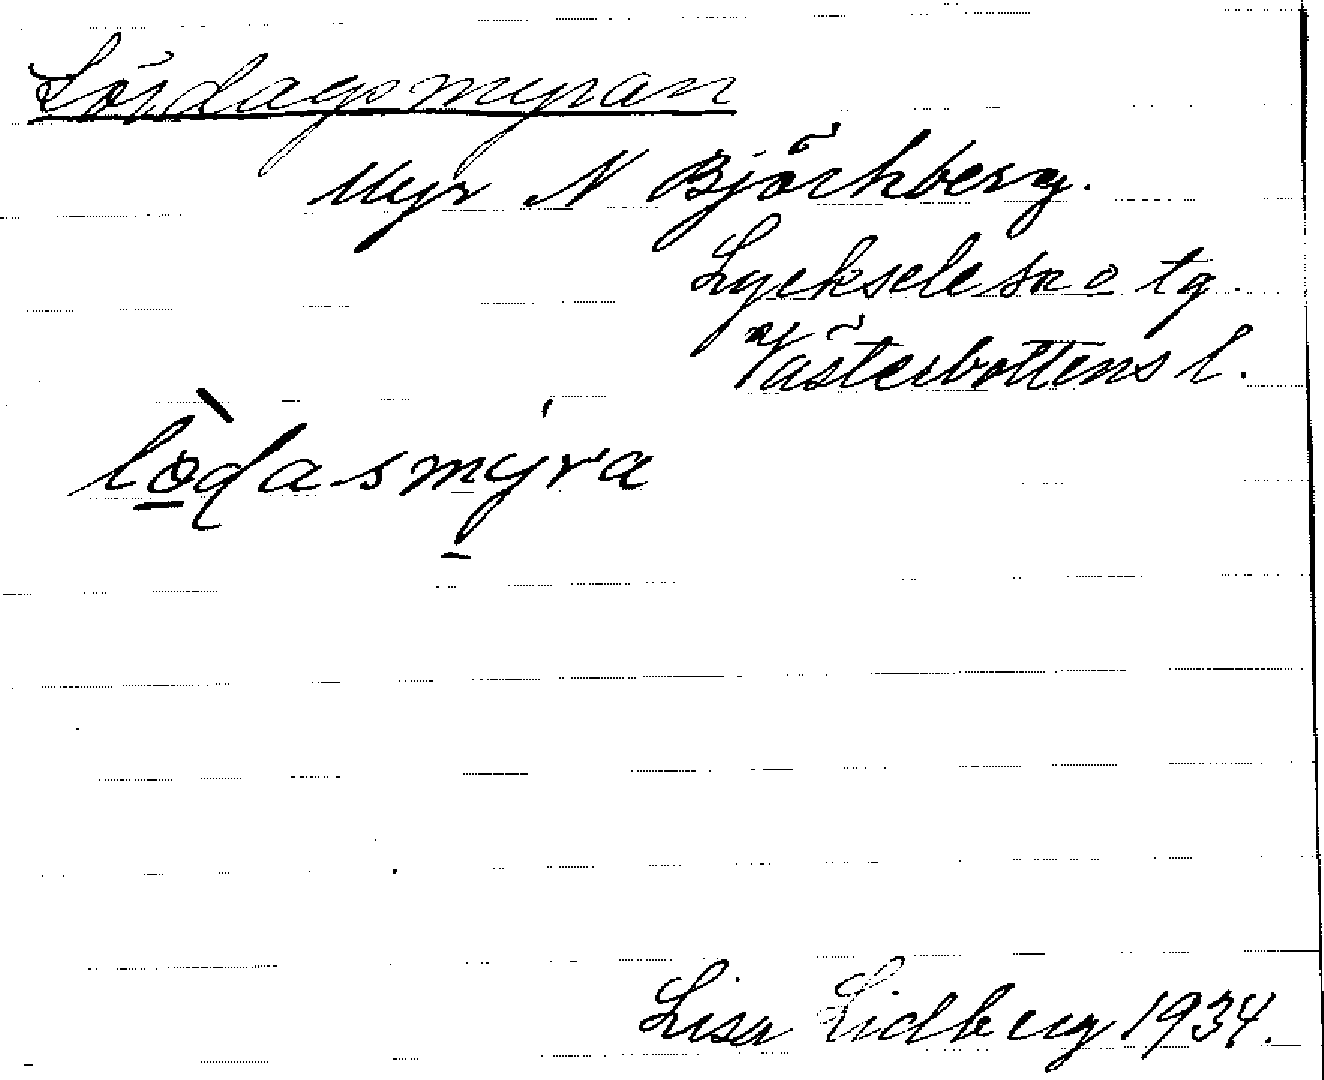 Lördagsmyran
Myr N Björkberg.
Lycksele sn o tg.
Västerbottens l.
lò̠dasmy̠̍ra
Lisa Lidberg 1934.